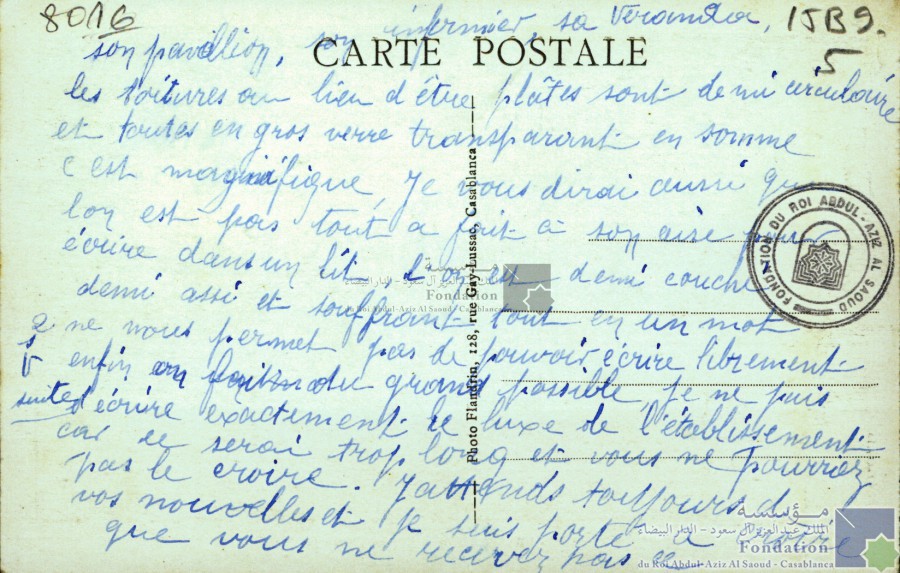 8016
son pavillion, son infirmier, sa veranda,
15B9.
5
CARTE POSTALE
les toitures ou lieu d'être plâtes sont demi circulaire
et toutes en gros verre transparant en somme
c est magnifique, Je vous dirai aussi que
lon est pas tout a fait a son aise pour
écrire dans un lit, l'on est demi couche
demi assi et souffrant tout en un mot
ne nous permet pas de pouvoir écrire librement
enfin on du grand possible, je ne puis
d'écrire exactement le luxe de l'établissement
car ce serai trop long et vous ne pourriez
pas le croire. J'attends toujours de
vos nouvelles et je suis porté a croire
que vous ne recevez pas
suite
Photo Flandrin, 128, rue Gay-Lussac, Casablanca
FONDATION DU ROI ABDUL-AZIZ AL SAOUD
مؤسسة
الملك عبد العزيز آل سعود - الدار البيضاء
Fondation
du Roi Abdul-Aziz Al Saoud - Casablanca
مؤسسة
الملك عبد العزيز آل سعود - الدار البيضاء
Fondation
du Roi Abdul-Aziz Al Saoud - Casablanca